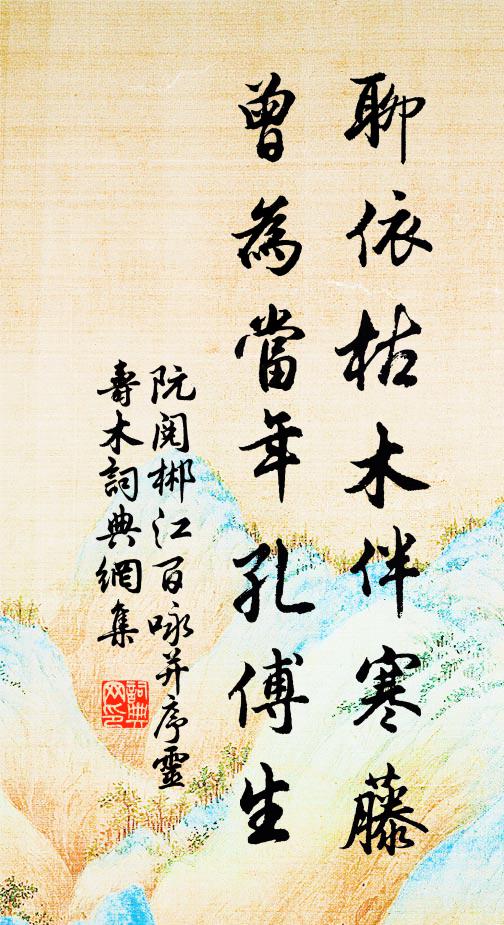 聊依枯木伴寒藤
曾為當年孔傅生
阮閱郴江百咏并序靈
壽木詞典網集
詞典網印